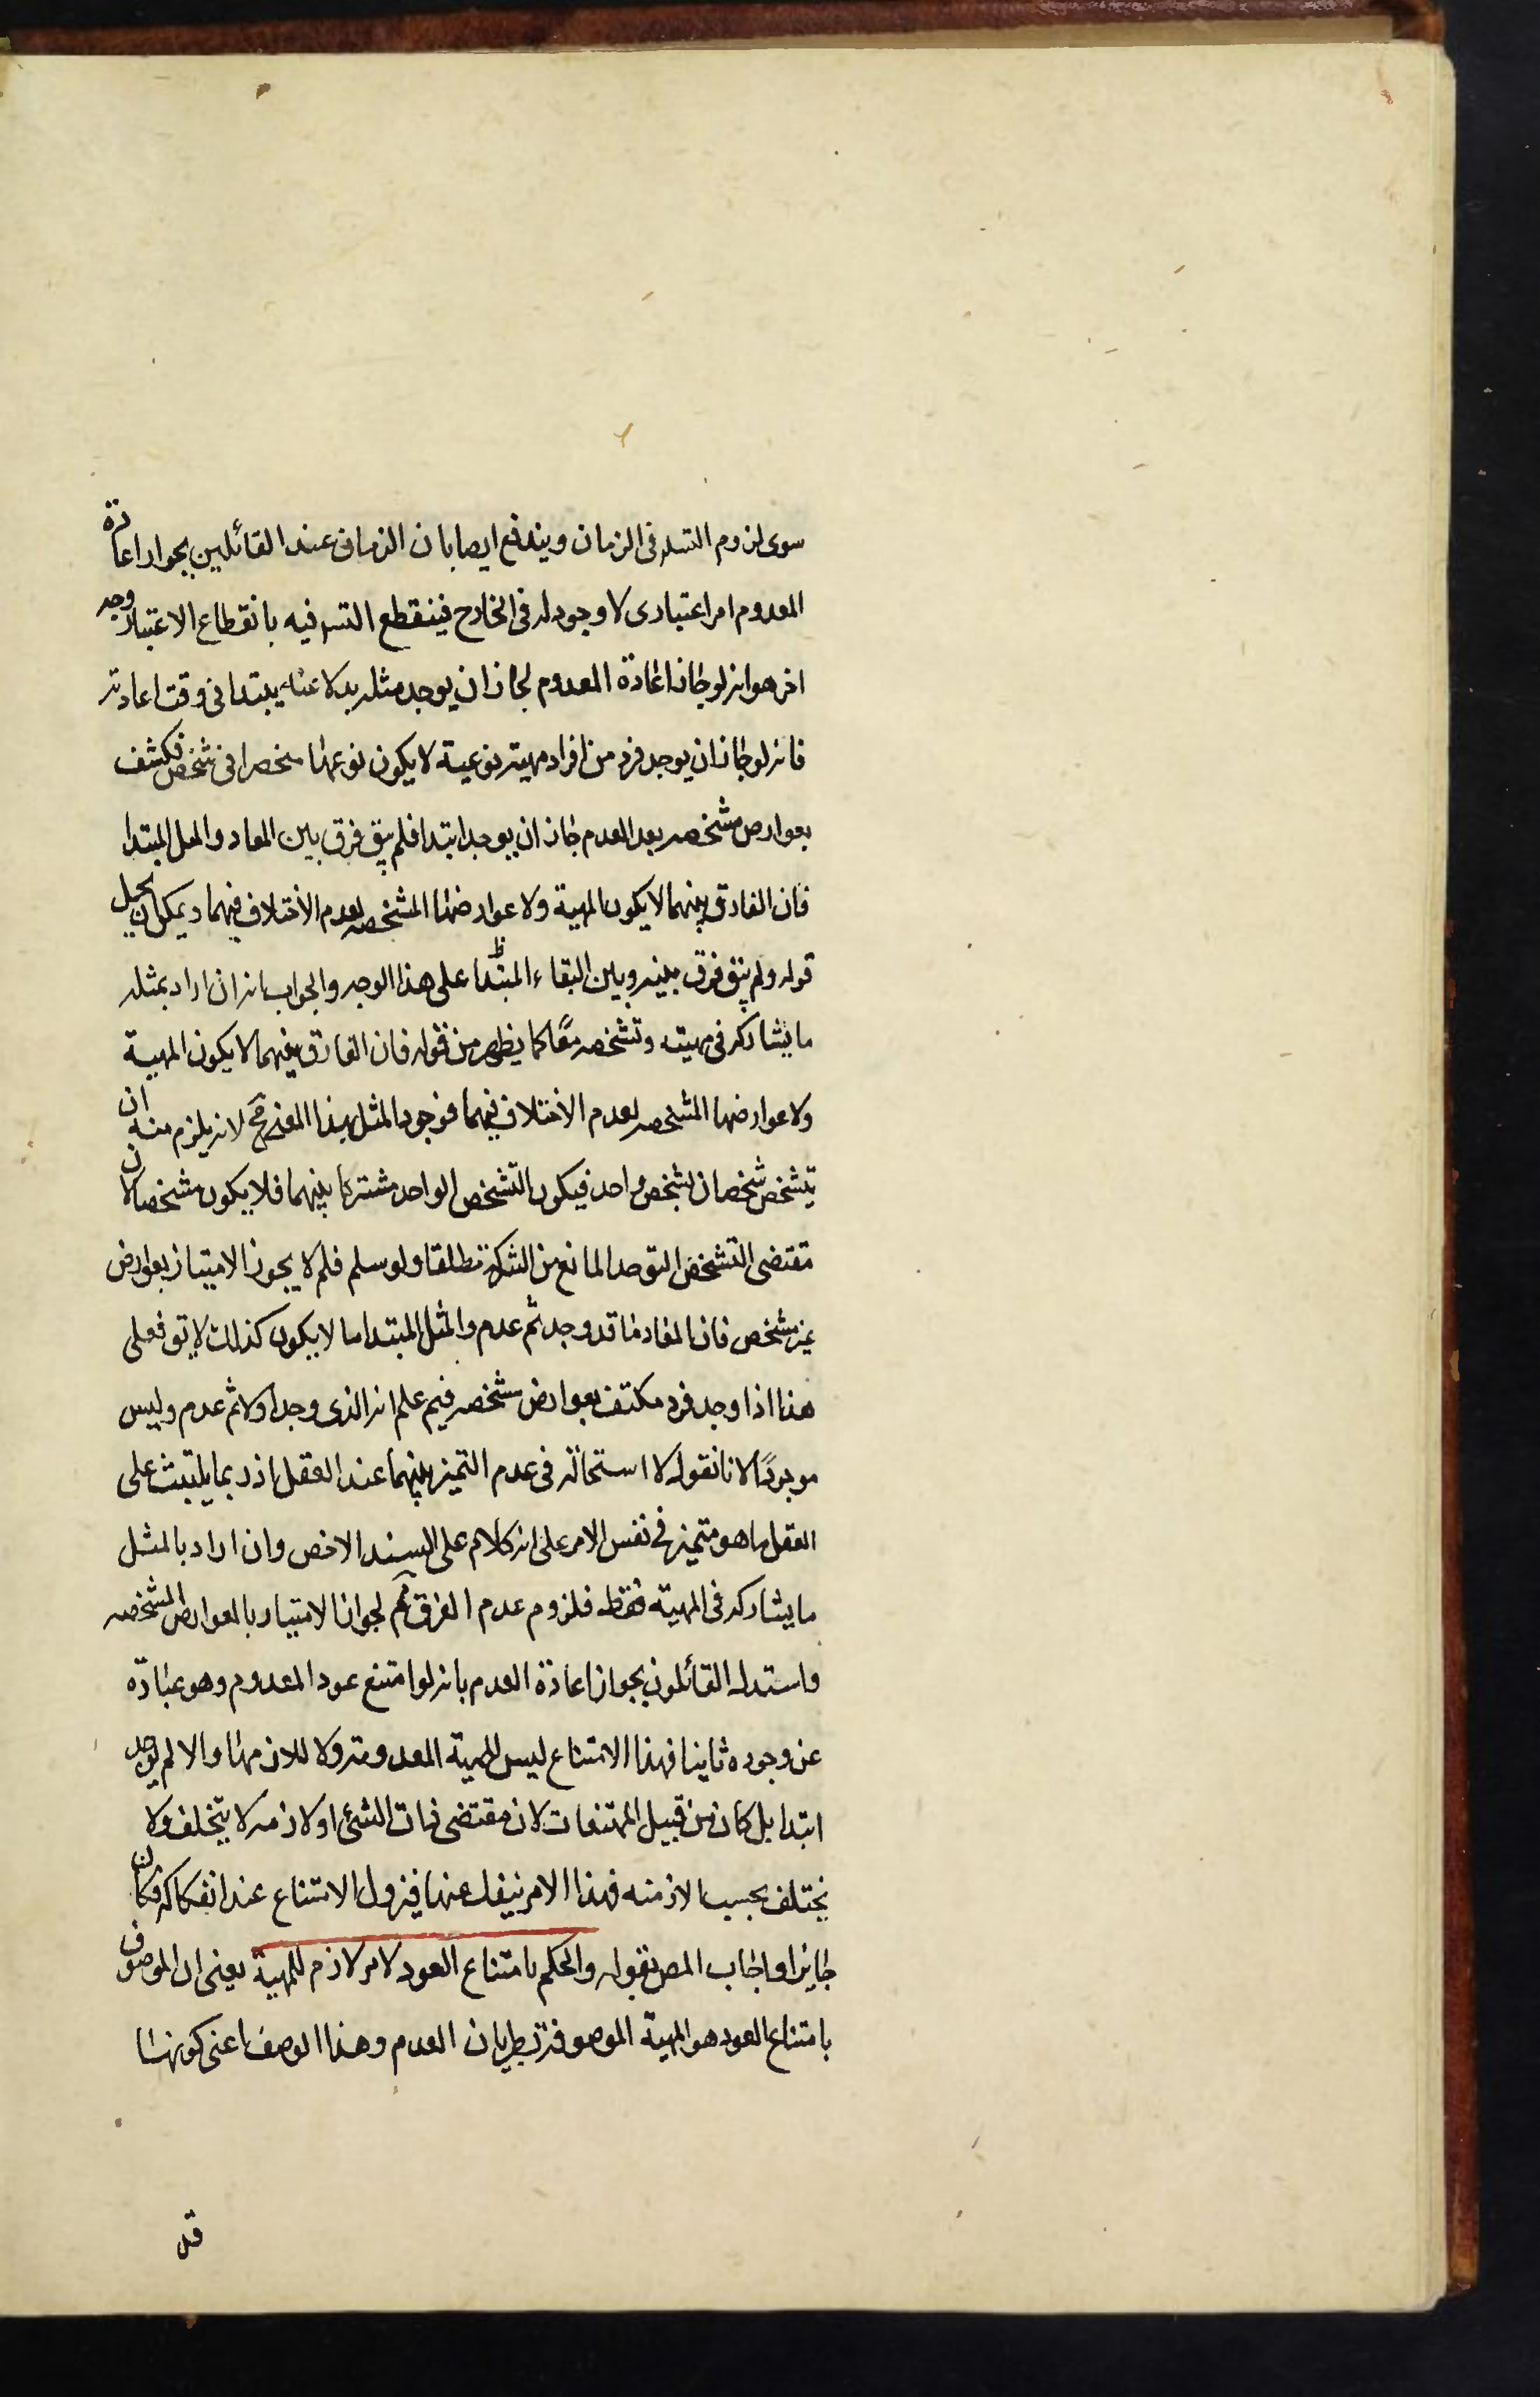 سوى لزوم التسلـ فى الزمان ويندفع ايضا بان الزمان عند القائلين بجواز اعادة
المعدوم امر اعتبارى لا وجود له فى الخارج فينقطع التسـ فيه بانقطاع الاعتبار وجه
اخر هو انه لو جاز اعادة المعدوم لجاز ان يوجد مثله بدلا عنه يبتدا فى وقت اعادته
فانه لو جاز ان يوجد فرد من افراد مهية نوعية لا يكون نوعها منحصرا فى شخص
بعوارض مشخصه بعد العدم جاز ان يوجد ابتدا فلم يبق فرق بين المعاد والمثل المبتدا
فان الفارق بينهما لا يكون المهية ولا عوارضها المشخصه لعدم الاختلاف فيهما ويمكن ان يحمل
قوله ولم يبق فرق بينه وبين المبتدا على هذا الوجه والجواب انه ان اراد بمثله
ما يشاركه فى مهيته وتشخصه معًا كما يظهر من قوله فان الفارق بينهما لا يكون المهية
ولا عوارضها المشخصه لعدم الاختلاف فيهما فوجود المثل بهذا المعنى مح لانه يلزم منه ان
يتشخص شخصان بتشخص واحد فيكون التشخص الواحد مشتركا بينهما فلا يكون مشخصا لان
مقتضى التشخص التوحد المانع من الشركة مطلقا ولو سلم فلم لا يجوز الامتياز بعوارض
غير مشخص فان المعاد ما قد وجد ثم عدم والمثل المبتدا ما لا يكون كذلك لا يق فعلى
هذا اذا وجد فرد مكتنف بعوارض مشخصه فبم علم انه الذى وجد اولا ثم عدم وليس
موجودًا لانا نقول لا استحالة فى عدم التميز بينهما عند العقل اذ ربما يلتبث على
العقل ما هو متميز فى نفس الامر على انه كلام على السند الاخص وان اراد بالمثل
ما يشاركه فى المهية فقط فلزوم عدم الفرق مم لجواز الامتياز بالعوارض المشخصه
واستدل القائلون بجواز اعادة العدم بانه لو امتنع عود المعدوم وهو عبارة
عن وجوده ثانيا فهذا الامتناع ليس لمهية المعدوم ولا للازمها والا لم يوجد
ابتدا بل كان من قبيل الممتنعات لان مقتضى ذات الشئ او لازمه لا يتخلف ولا
يختلف بحسب الازمنه فهذا الامر ينفك عنها فيزول الامتناع عند انفكاكه فكان
جايزا واجاب المص بقوله والحكم بامتناع العود لامر لازم للمهية يعنى ان الموصوف
بامتناع العود هو المهية الموصوفة بطريان العدم وهذا الوصف اعنى كونها
قد